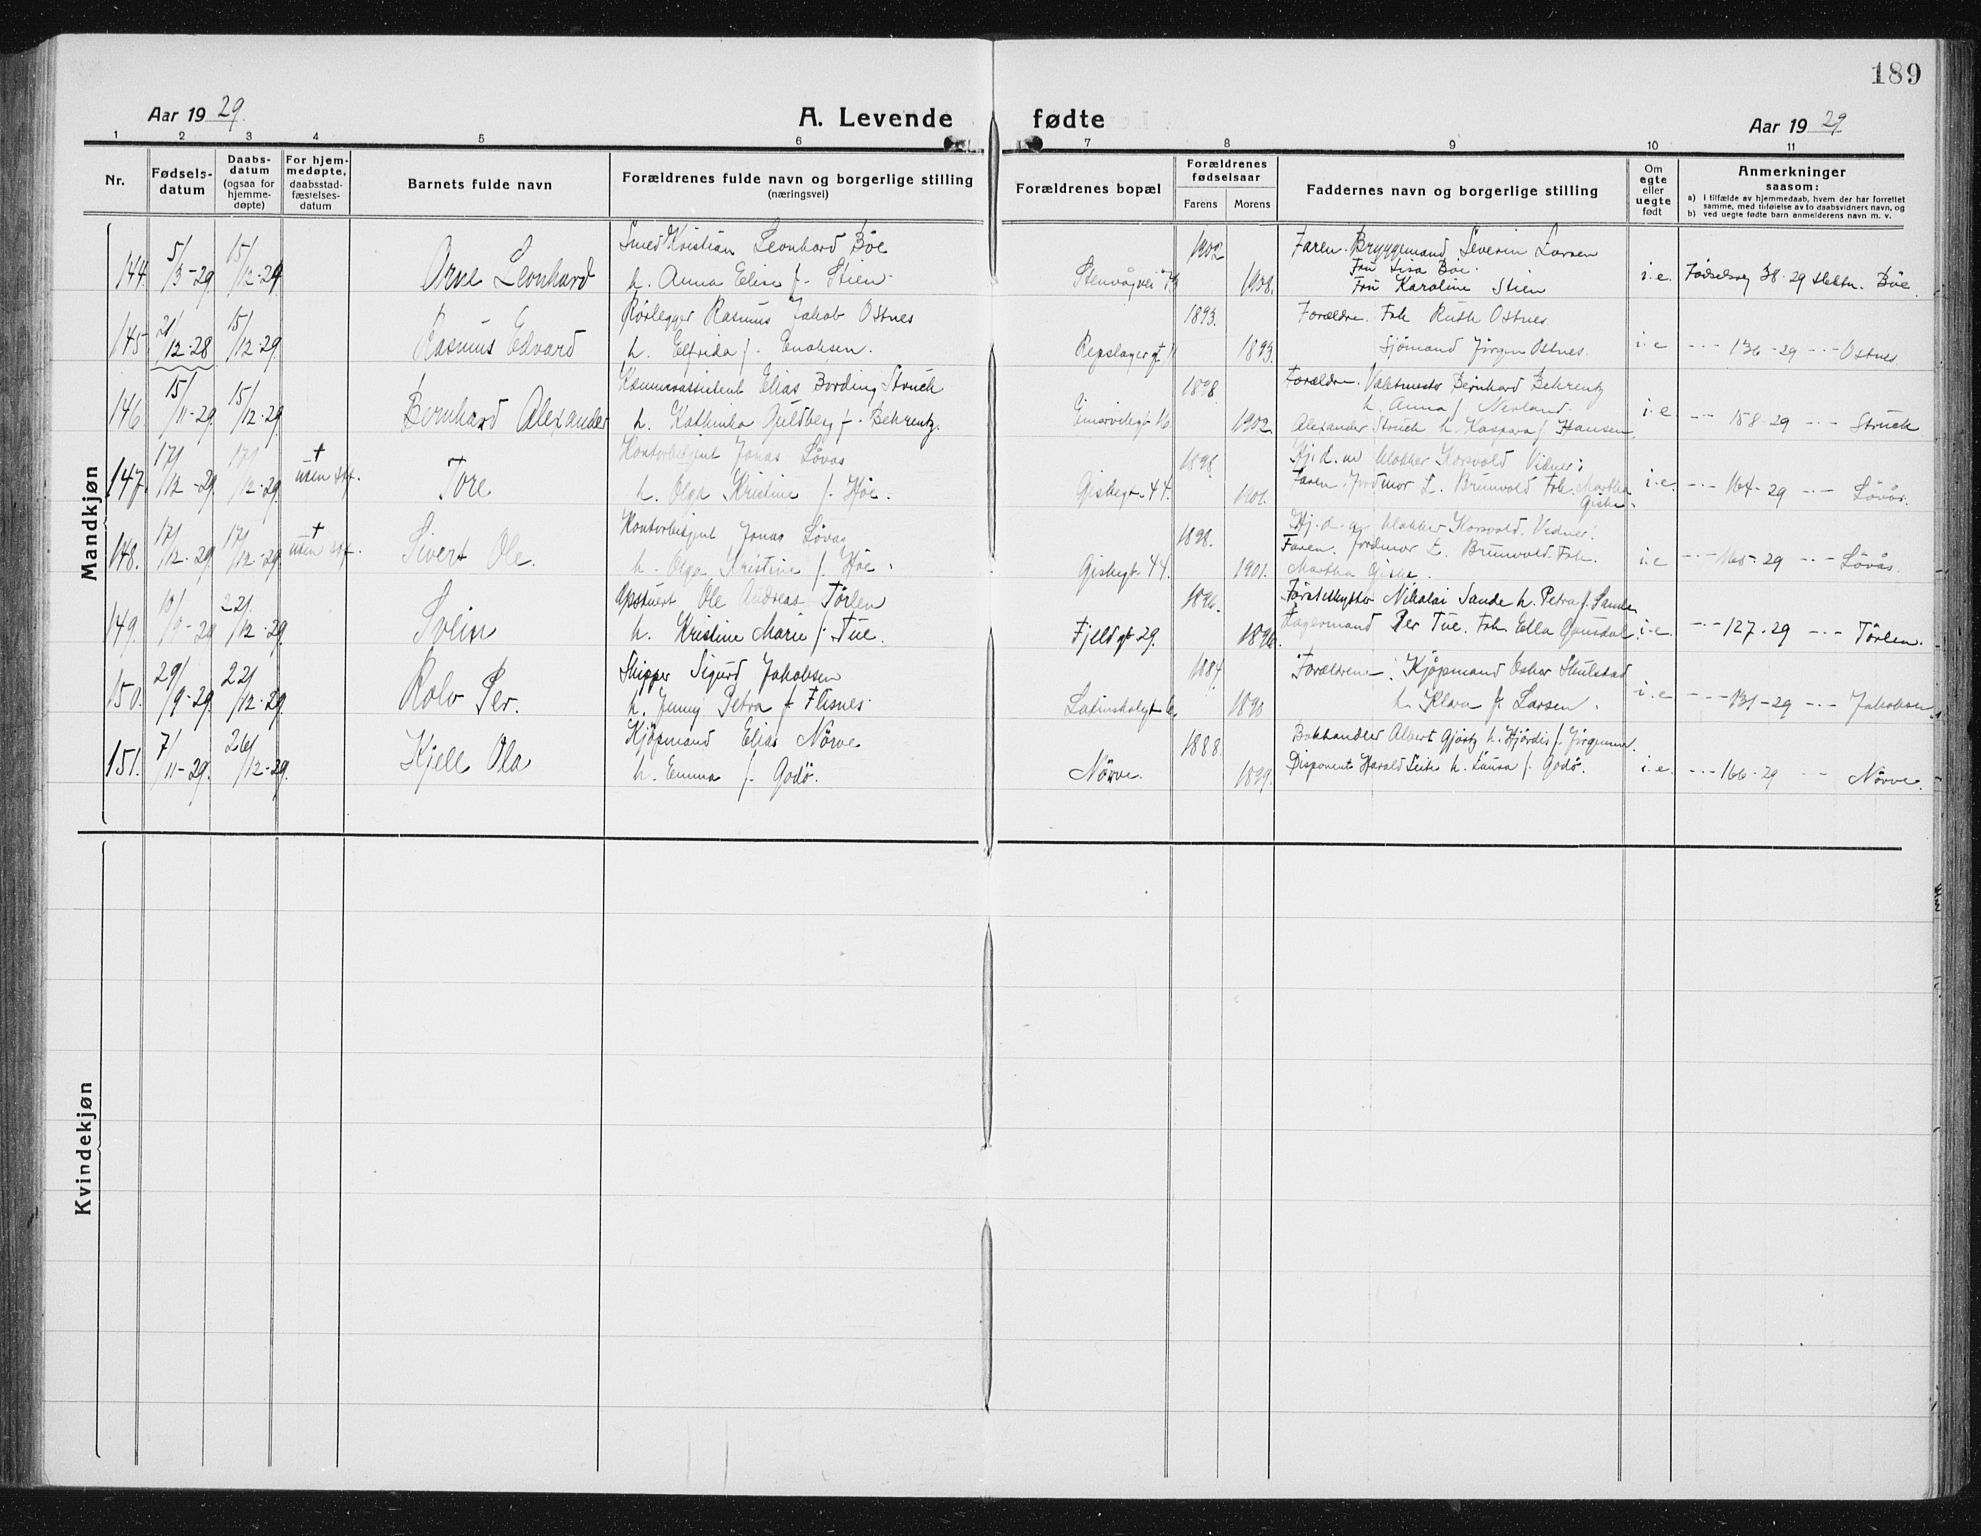 189
Aar 1929
A. Levende fødte
Aar 1929
1 2 3 4 5 6 7 8 9 10 11
Nr.
Fødsels-
datum
Daabs-
datum
(ogsaa for
hjemme-
døpte)
For hjem-
medøpte,
daabsstad-
fæstelses-
datum
Barnets fulde navn
Forældrenes fulde navn og borgerlige stilling
(næringsvei)
Forældrenes bopæl
Forældrenes
fødselsaar
Farens Morens
Faddernes navn og borgerlige stilling
Om
egte
eller
uegte
født
Anmerkninger
saasom:
a) I tilfælde av hjemmedaab, hvem der har forrettet
samme, med tilføielse av to daabsvidners navn, og
b) ved uegte fødte barn anmelderens navn m. v.
Mandkjøn
144. 5/3-29. 15/12-29 Arne Leonhard
Smed Kristian Leonhard Böe
h. Anna Elise f. Stien
1902
1908.
Faren. Bryggemand Severin Larsen
Fru Lisa Böe.
Fru Karoline Stien
i.e. Fødselsreg 38-29 Böe.
145. 21/12-28 15/12-29 Rasmus Edvard
Rørlegger Rasmus Jakob Ostnes
h. Elfrida f. Enoksen.
Repslagergt 11
1893.
1893.
Forældre. Frk Ruth Ostnes
Sjömand Jörgen Ostnes.
i.e --- 136-29 --- Ostnes
146. 15/11-29. 15/12-29. Bernhard Alexander
Kæmnerassistent Elias Bording Struck
h. Kathinka Guldberg f. Behrentz.
1898
1902.
Forældre. Bernhard Behrentz
h. Anna f. Nerland.
Alexander Struck h. Kaspara f. Hansen.
i.e --- 158-29 --- Struck
147. 17/12-29. 17/12-29. + uten stf. Tore
Kontorbetjent Jonas Lövås
h. Olga Kristine f. Höe.
Giskegt. 44.
1898.
1901.
Hj.d. av klokker Korsvold Vidner:
Faren. Jordmor L. Brunvold. Frk. Martha
Giske.
i.e. --- 164-29 --- Lövås.
148. 17/12-29. 17/12-29. + uten stf. Sivert Ole.
Kontorbetjent Jonas Lövås
h. Olga Kristine f. Höe.
Giskegt. 44.
1898.
1901.
Hj.d. av klokker Korsvold. Vidner:
Faren. Jordmor L. Brunvold. Frk.
Martha Giske.
i.e --- 165-29 --- Lövås.
149. 10/9-29 22/12-29. Svein
Ole Andreas Törlen
h. Kristine Marie f. Tue.
Fjeldgt 29.
1896.
1896.
Nikolai Sande h. Petra f. Sande
Lagermand Per Tue. Frk. Ella Gausdal
i.e. --- 127-29 --- Törlen.
150. 29/9-29. 22/12-29. Rolv Per.
Skipper Sigurd Jakobsen
h. Jenny Petra f. Flisnes.
Latinskolegt 6.
1884.
1890
Forældrene. Kjöpmand Oskar Skulstad
h. Klara f. Larsen.
i.e --- 131-29 --- Jakobsen.
151. 7/11-29. 26/12-29. Kjell Ola
Kjöpmand Elias Nörve
h. Emma f. Godö.
Nörve.
1888.
1899.
Bokhandler Albert Gjörtz h. Hjördis f. Jörgensen.
Disponent Harald Leite h. Laura f. Godö.
i.e. --- 166-29 --- Nörve.
Kvindekjøn